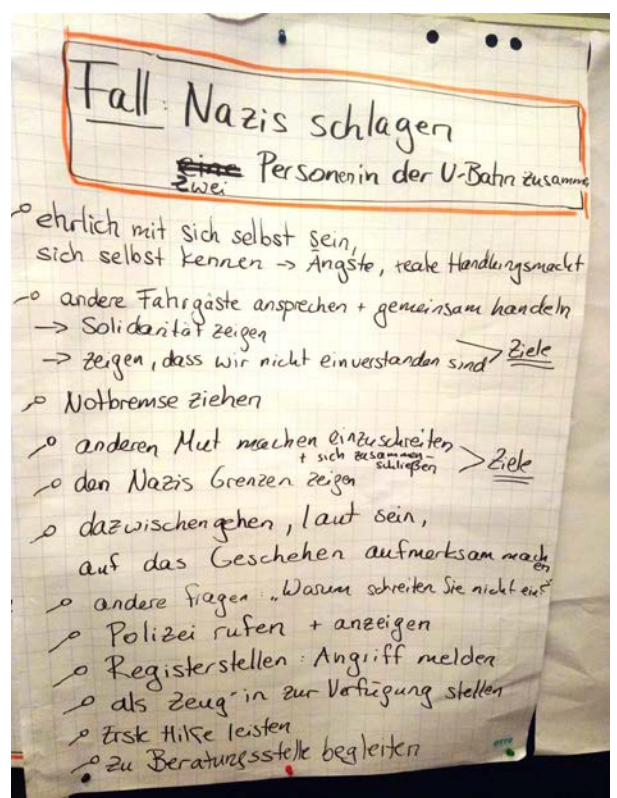 Fall: Nazis schlagen
eine Personen in der U-Bahn zusamme
zwei
ehrlich mit sich selbst sein,
sich selbst kennen → Ängste, reale Handlungsmacht
andere Fahrgäste ansprechen + gemeinsam handeln
→ Solidarität zeigen
→ zeigen, dass wir nicht einverstanden sind > Ziele
Notbremse ziehen
anderen Mut machen einzuschreiten
+ sich zusammen-
schließen > Ziele
den Nazis Grenzen zeigen
dazwischengehen, laut sein,
auf das Geschehen aufmerksam mach
en
andere fragen: „Warum schreiten Sie nicht ein?"
Polizei rufen + anzeigen
Registerstellen: Angriff melden
als Zeug*in zur Verfügung stellen
Erste Hilfe leisten
zu Beratungsstelle begleiten